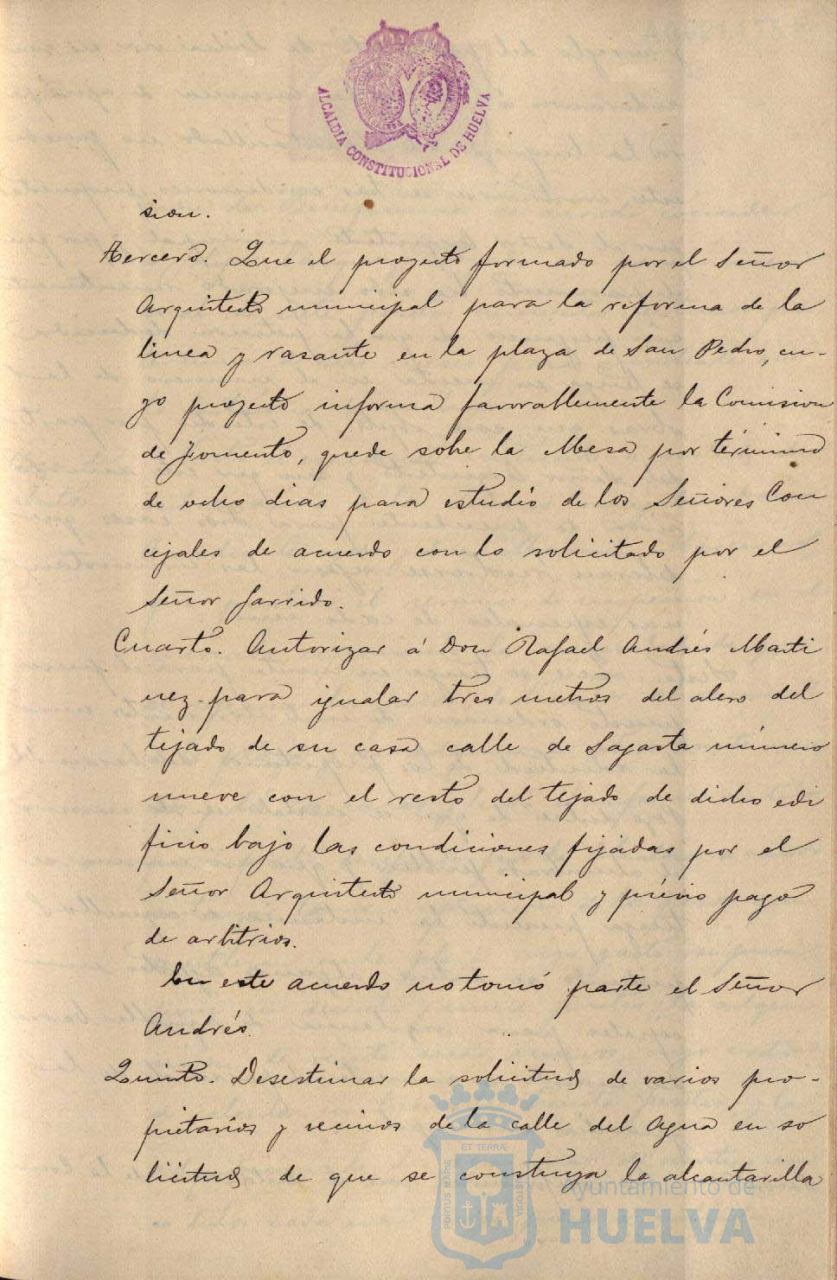 ALCALDIA CONSTITUCIONAL DE HUELVA
sion.
Tercero. Que el proyecto formado por el Señor
Arquitecto municipal para la reforma de la
linea y rasante en la plaza de San Pedro, cu-
yo proyecto informa favorablemente la Comision
de Fomento, quede sobre la Mesa por término
de ocho dias para estudio de los Señores Con
cejales de acuerdo con lo solicitado por el
Señor Garrido.
Cuarto. Autorizar á Don Rafael Andrés Marti
nez para igualar tres metros del alero del
tejado de su casa calle de Sagasta número
nueve con el resto del tejado de dicho edi
ficio bajo las condiciones fijadas por el
Señor Arquitecto municipal y prévio pago
de arbitrios.
En este acuerdo no tomó parte el Señor
Andrés.
Quinto. Desestimar la solicitud de varios pro-
pietarios y vecinos de la calle del Agua en so
licitud de que se construya la alcantarilla
PORTUS MARIS ET TERRÆ CUSTODIA
Ayuntamiento de
HUELVA